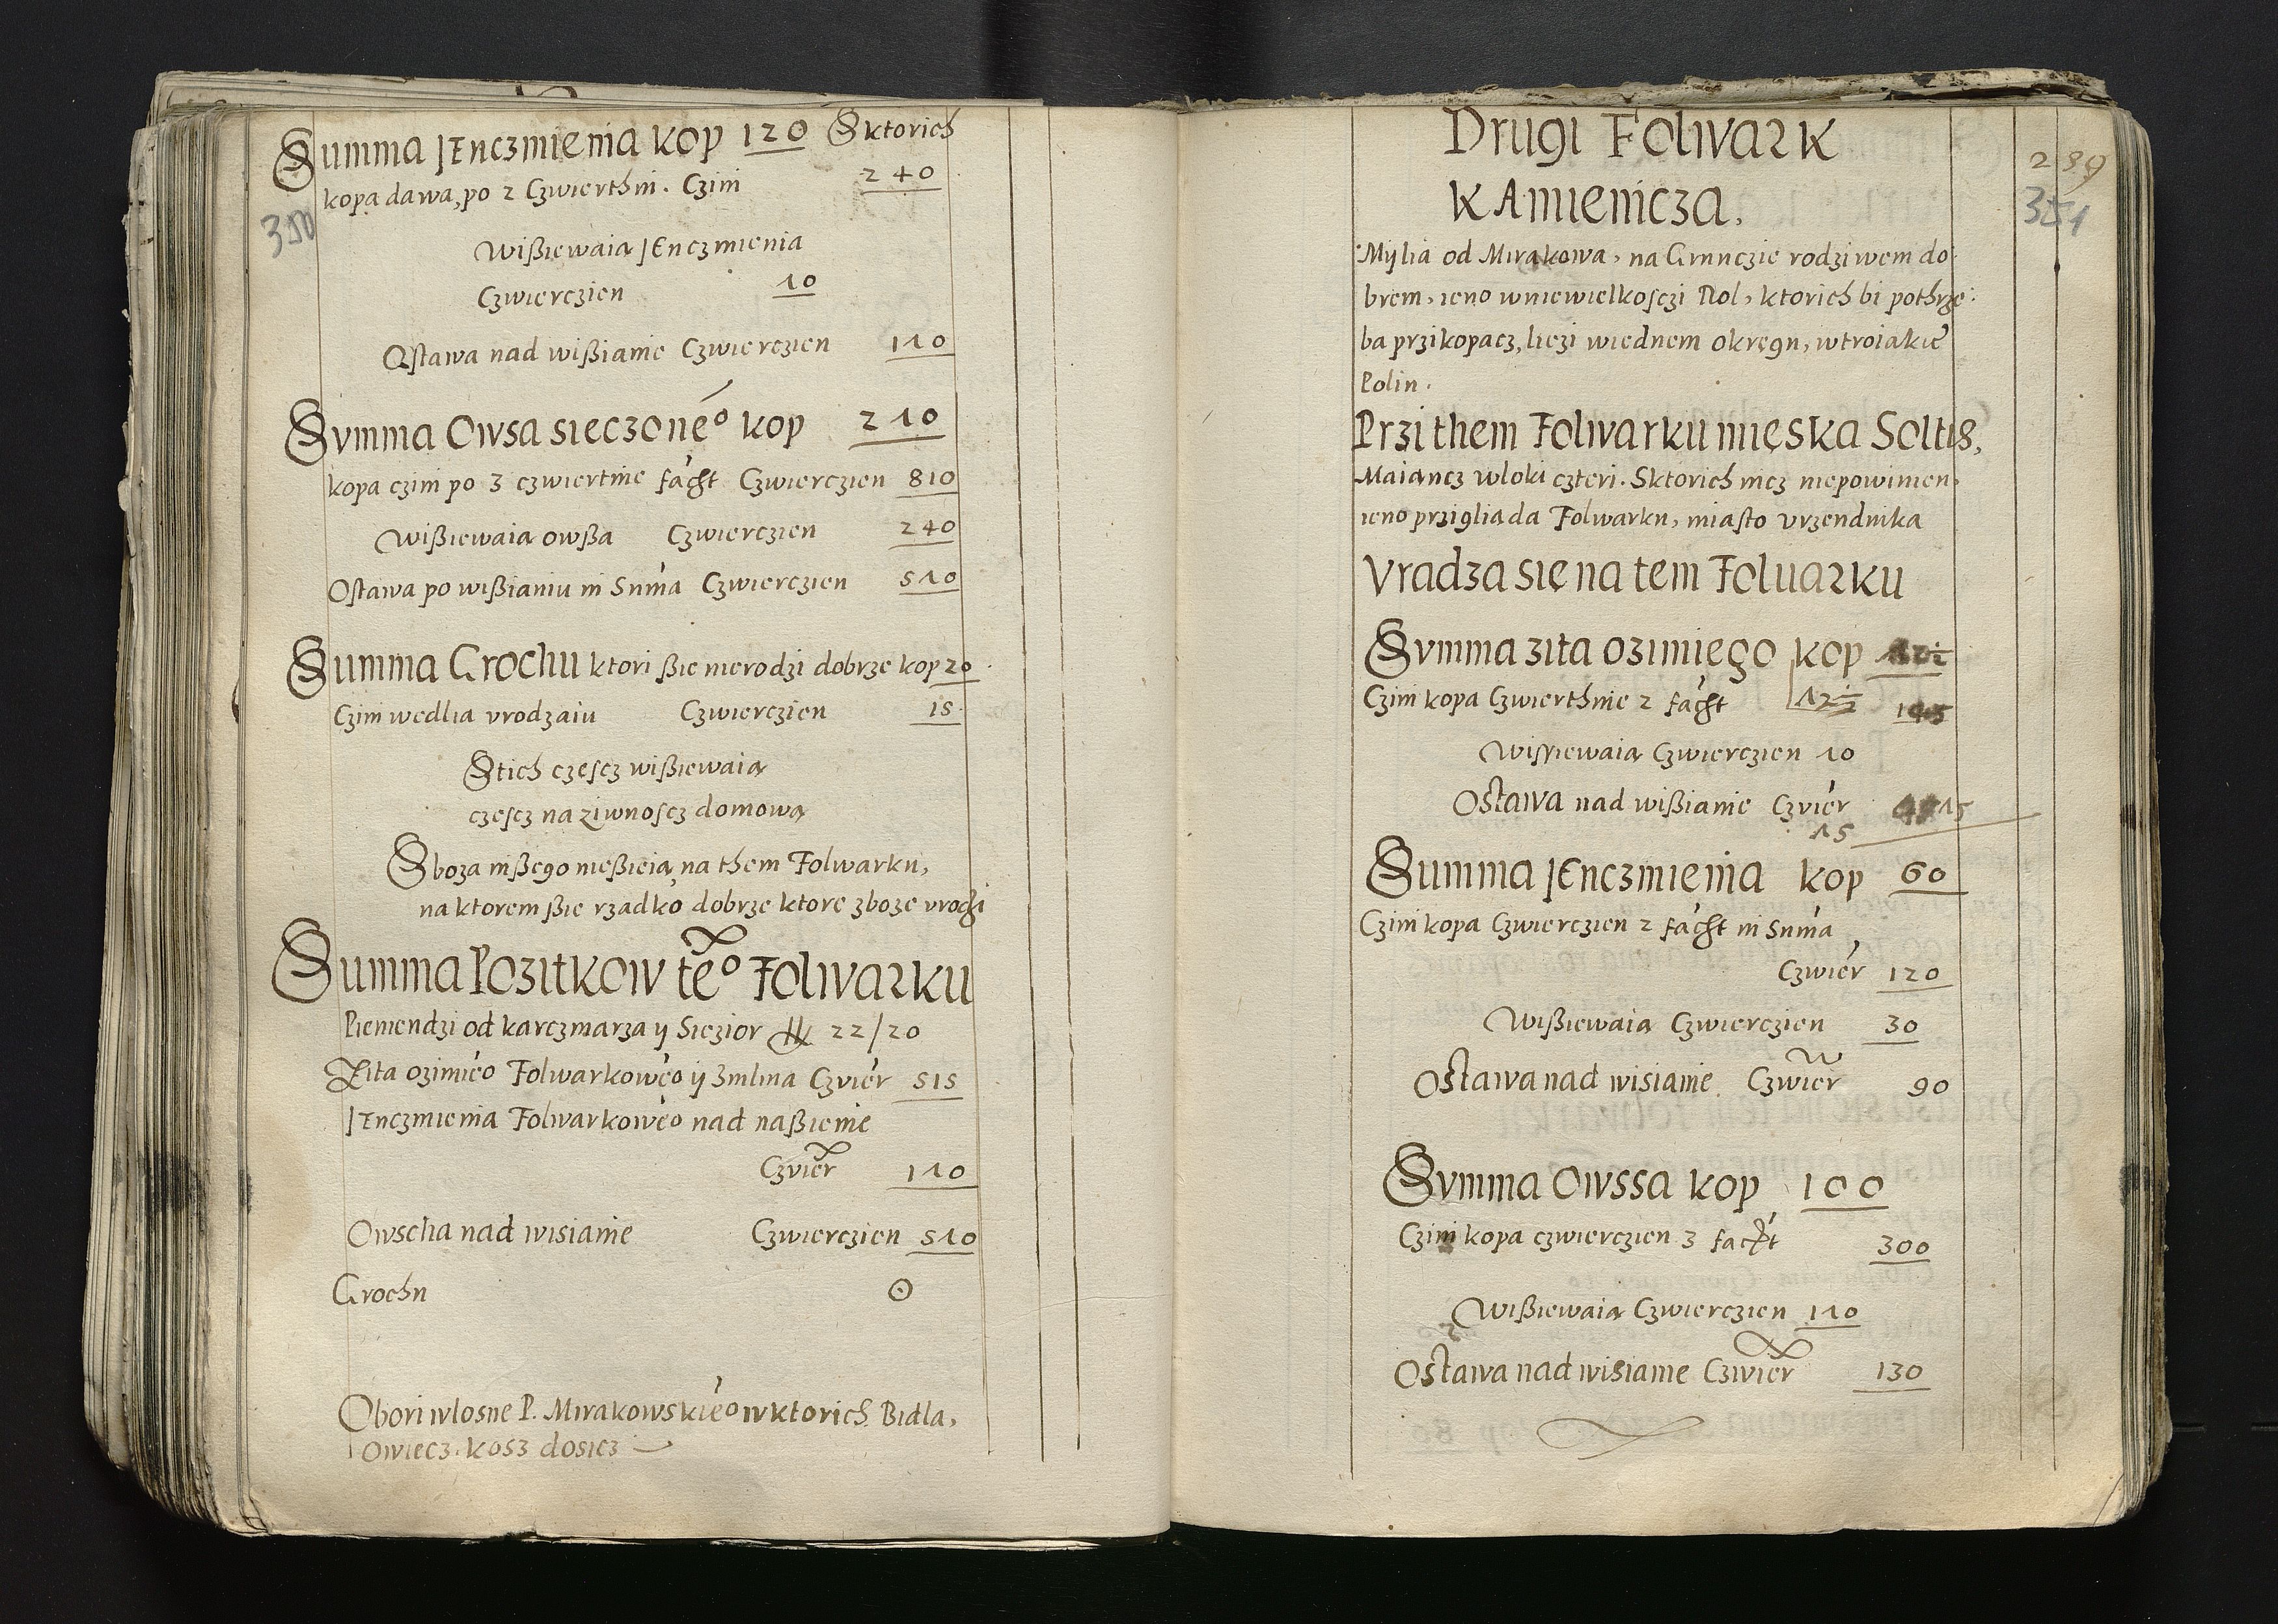 Summa JEnczmienia kop 120 Sktorich
kopa dawa, po 2 Czwierthni. Czini 240
350
Wißiewaią JEnczmienia
Czwierczien 10
Ostawa nad wißianie Czwierczien 110
Svmma Owsa sieczoneo kop 210
kopa czini po 3 czwiertnie facht Czwierczien 810
Wißiewaią owßa Czwierczien 240
Ostawa po wißianiu in Suma Czwierczien 510
Summa Grochu ktori ßie nierodzi dobrze kop 20
Czini wedlia vrodzaiu Czwierczien 15
Stich czescz wißiewaią
czescz na ziwnoscz domową
Sboza inßego nießieią na them Folwarku,
na ktorem ßie rzadko dobrze ktore zboze vrodzi
Summa Pozitkow teo Folwarku
Pieniendzi od karczmarza ÿ Siezior 22/20
Zita ozimieo Folwarkoweo ÿ Zmlina Czvier 515
JEnczmienia Folwarkoweo nad naßienie
Czvier 110
Owscha nad wisianie Czwierczien 510
Grochu ʘ
Obori wlosne P. Mirakowskieo wktorich Bidla,
Owiecz. kosz dosicz
Drugi Folwark
KAmienicza.
289
351
Mÿlia od Mirakowa, na Grunczie rodziwem do
brem, ieno wniewielkosczi Rol, ktorich bi pothrze
ba przikopacz, liezi wiednem okręgu, wtroiakie
Poliu.
Przi them Folwarku mięska Soltis,
Maiancz wloki czteri. Sktorich nicz niepowinien,
ieno prziglia da Folwarku, miasto vrzendnika
Vradza się na tem Foluarku
Svmma zita ozimiego kop
Czini kopa Czwierthnie 2 facht
Wissiewaią Czwierczien 10
Ostawa nad wißianie Czvier 15
15
Summa JEnczmienia kop 60
Czini kopa Czwierczien 2 facht in Suma
Czwier 120
Wißiewaią Czwierczien 30
Ostawa nad wisianie Czwier 90
Svmma Owssa kop 100
Czini kopa czwierczien 3 facht 300
Wißiewaią Czwierczien 110
Ostawa nad wisianie Czwier 130